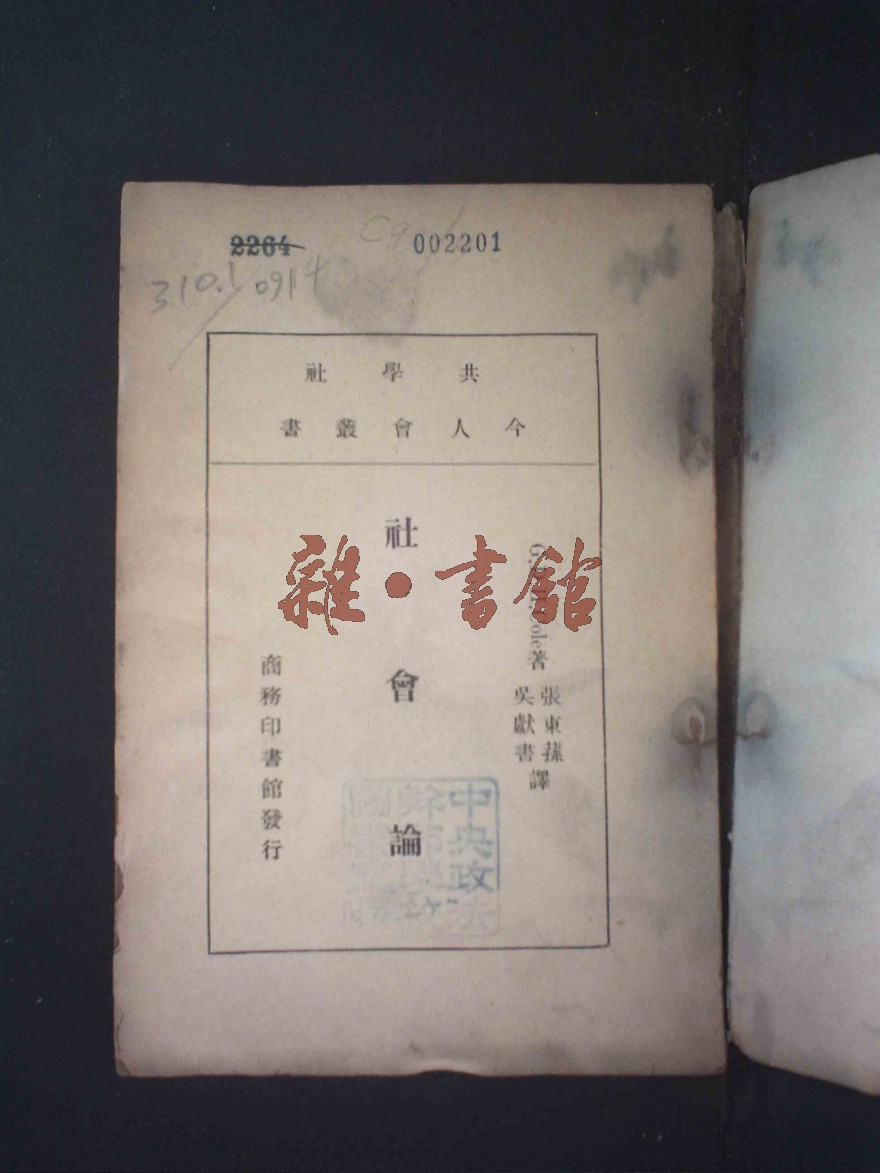 2264
002201
310.1 0914
共學社
今人會叢書
G. D. H. Cole著
張東蓀
吳獻書
譯
社會論
商務印書館發行
雜·書館
中央政法